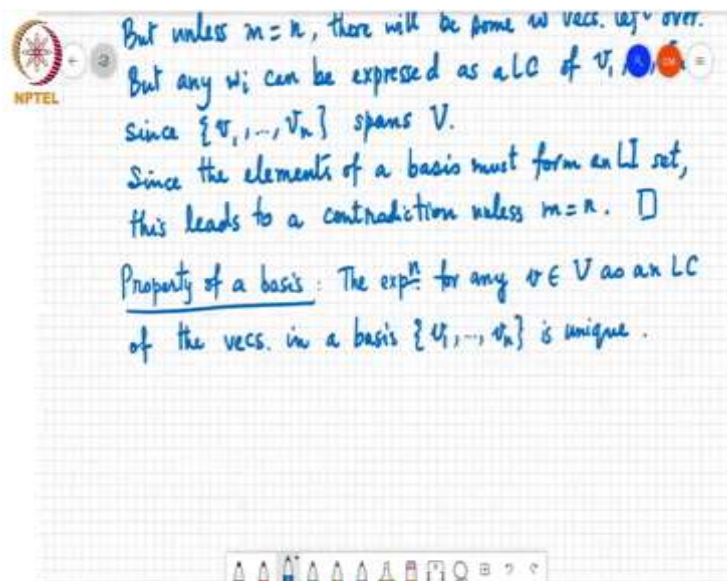 But unless m = n, there will be some w vecs. left over.
But any wᵢ can be expressed as a LC of v₁
since {v₁,..., vₙ} spans V.
Since the elements of a basis must form an LI set,
this leads to a contradiction unless m = n. □
Property of a basis : The expⁿ for any v ∈ V as an LC
of the vecs. in a basis {v₁,..., vₙ} is unique.
NPTEL